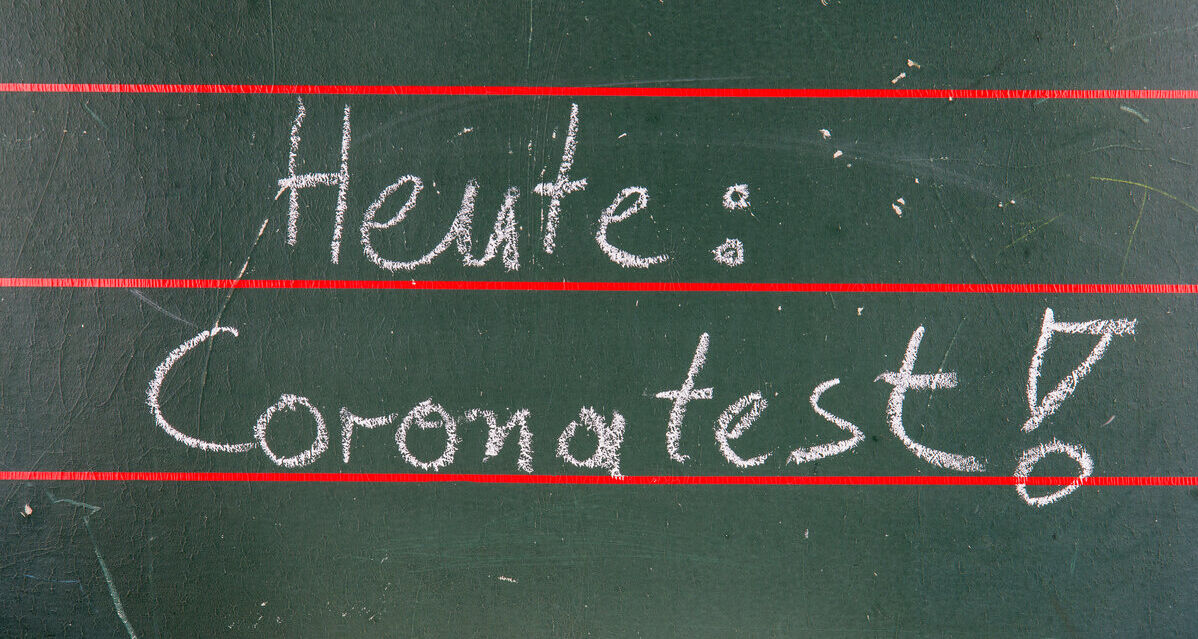 Heute:
Coronatest!